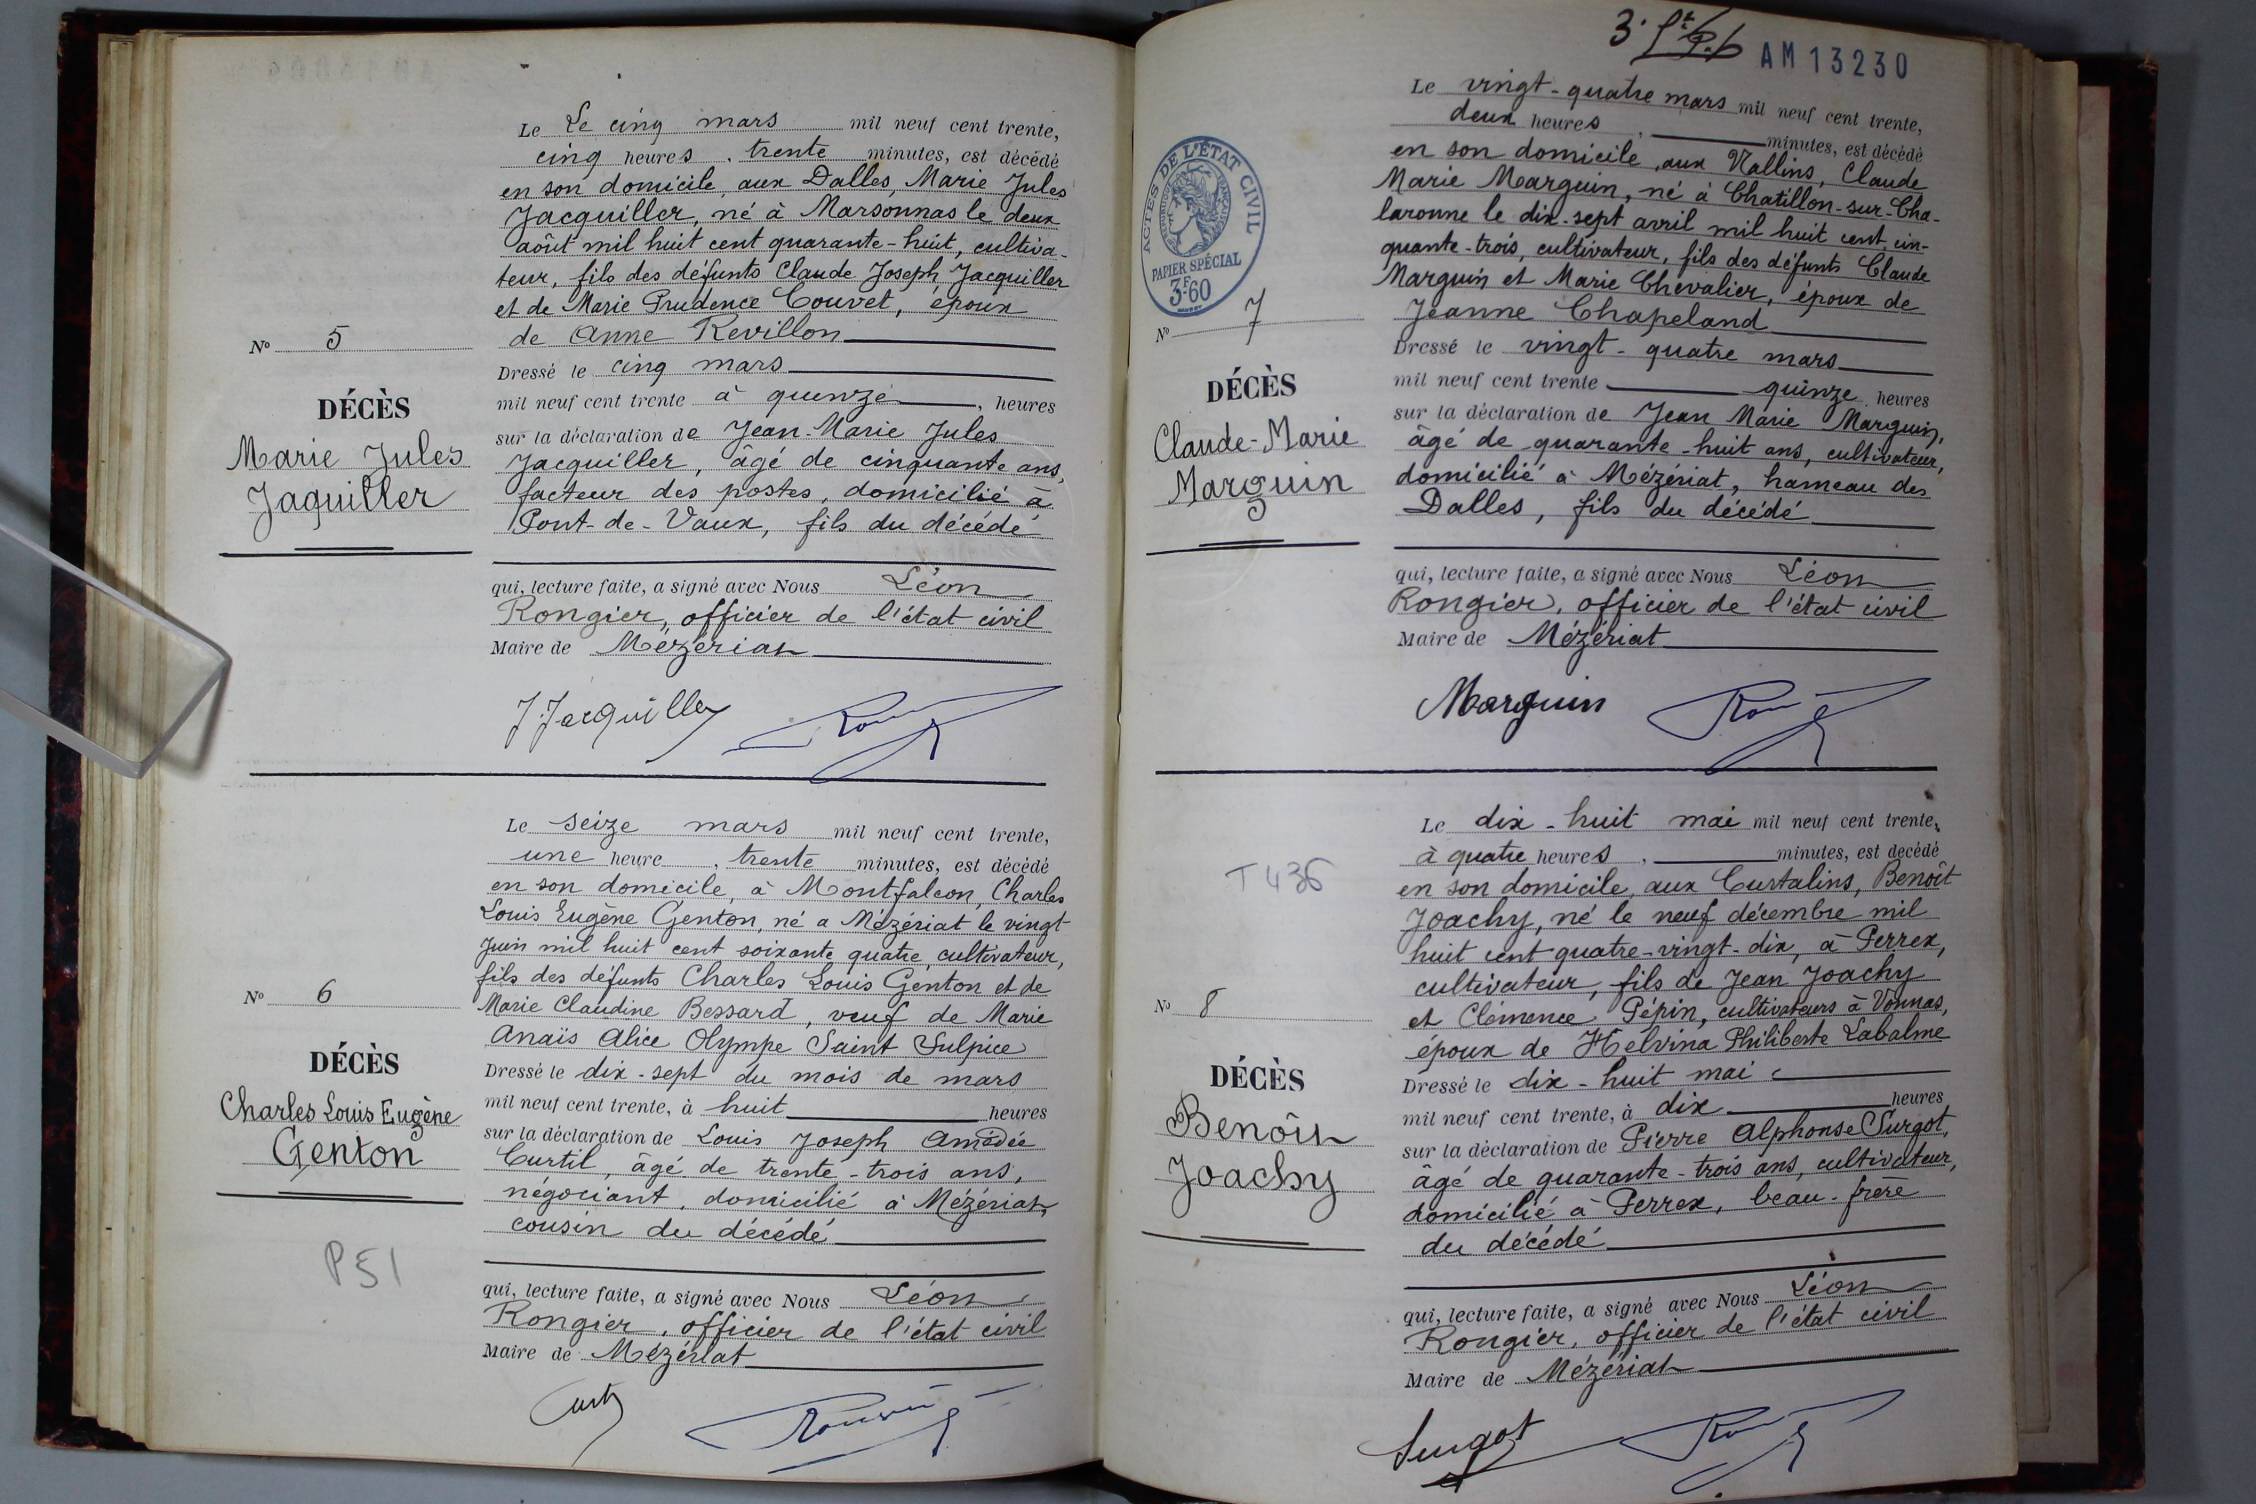 Le Le cinq mars mil neuf cent trente,
cinq heures, trente minutes, est décédé
en son domicile, aux Dalles, Marie Jules
Jacquiller, né à Marsonnas le deux
août mil huit cent quarante-huit, cultiva-
teur, fils des défunts Claude Joseph Jacquiller
et de Marie Prudence Couvet, époux
de Anne Revillon
Nº 5
Dressé le cinq mars
DÉCÈS
mil neuf cent trente à quinze, heures
Marie Jules
Jaquiller
sur la déclaration de Jean-Marie Jules
Jacquiller, âgé de cinquante ans,
facteur des postes, domicilié à
Pont-de-Vaux, fils du décédé
qui, lecture faite, a signé avec Nous Léon
Rongier, officier de l'état civil
Maire de Mézériat
J. Jacquiller
Le seize mars mil neuf cent trente,
une heure, trente minutes, est décédé
en son domicile, à Montfalcon, Charles
Louis Eugène Genton, né a Mézériat le vingt
Juin mil huit cent soixante quatre, cultivateur,
fils des défunts Charles Louis Genton et de
Marie Claudine Bessard, veuf de Marie
Anaïs Alice Olympe Saint Sulpice
Nº 6
DÉCÈS
Charles Louis Eugène
Genton
P51
Dressé le dix-sept du mois de mars
mil neuf cent trente, à huit heures
sur la déclaration de Louis Joseph Amédée
Curtil, âgé de trente-trois ans,
négociant, domicilié à Mézériat,
cousin du décédé
qui, lecture faite, a signé avec Nous Léon
Rongier, officier de l'état civil
Maire de Mézériat
AM 13230
Le vingt-quatre mars mil neuf cent trente,
deux heures, minutes, est décédé
en son domicile, aux Vallins, Claude
Marie Marguin, né à Chatillon-sur-Cha-
laronne le dix-sept avril mil huit cent cin-
quante-trois, cultivateur, fils des défunts Claude
Marguin et Marie Chevalier, époux de
Jeanne Chapeland
ACTES DE L'ÉTAT CIVIL
PAPIER SPÉCIAL
3F60
Nº 7
DÉCÈS
Claude-Marie
Marguin
Dressé le vingt-quatre mars
mil neuf cent trente quinze heures
sur la déclaration de Jean Marie Marguin,
âgé de quarante-huit ans, cultivateur,
domicilié à Mézériat, hameau des
Dalles, fils du décédé
qui, lecture faite, a signé avec Nous Léon
Rongier, officier de l'état civil
Maire de Mézériat
Marguin
Le dix-huit mai mil neuf cent trente,
à quatre heures, minutes, est decédé
en son domicile, aux Curtalins, Benoît
Joachy, né le neuf décembre mil
huit cent quatre-vingt-dix, à Perrex,
cultivateur, fils de Jean Joachy
et Clémence Pépin, cultivateurs à Vonnas,
époux de Helvina Philiberte Labalme
T436
Nº 8
DÉCÈS
Benoît
Joachy
Dressé le dix-huit mai
mil neuf cent trente, à dix heures
sur la déclaration de Pierre Alphonse Surgot,
âgé de quarante-trois ans, cultivateur,
domicilié à Perrex, beau-frère
du décédé
qui, lecture faite, a signé avec Nous Léon
Rongier, officier de l'état civil
Maire de Mézériat
Surgot